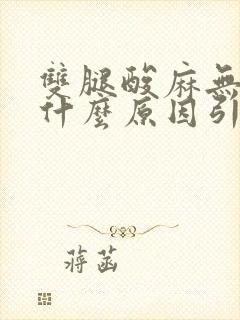 雙腿酸麻無
什麼原因引
蔣菡